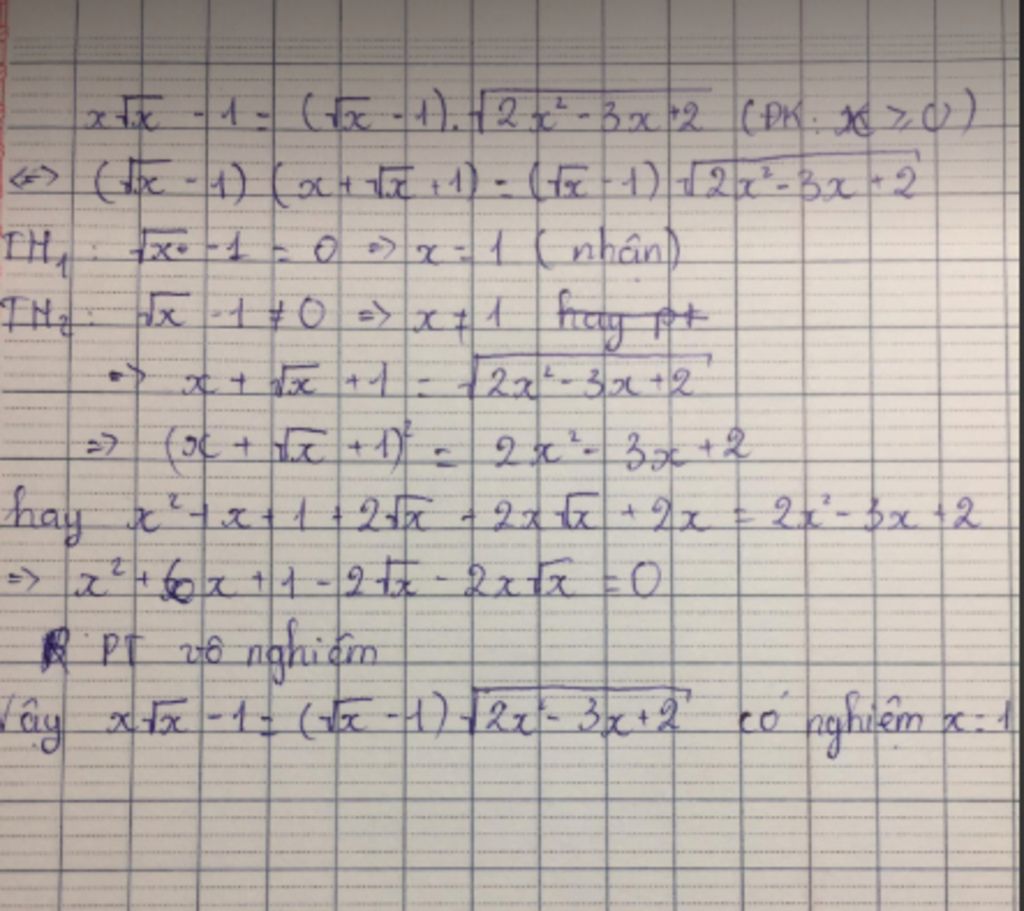 x√x - 1 = (√x - 1).√(2x² - 3x + 2) (ĐK: x ≥ 0)
<=> (√x - 1) (x + √x + 1) = (√x - 1) √(2x² - 3x + 2)
TH₁: √x - 1 = 0 => x = 1 (nhận)
TH₂: √x - 1 ≠ 0 => x ≠ 1 hay pt
=> x + √x + 1 = √(2x² - 3x + 2)
=> (x + √x + 1)² = 2x² - 3x + 2
hay x² + x + 1 + 2√x + 2x√x + 2x = 2x² - 3x + 2
=> x² + 6x + 1 - 2√x - 2x√x = 0
PT vô nghiệm
Vậy x√x - 1 = (√x - 1) √(2x² - 3x + 2) có nghiệm x = 1